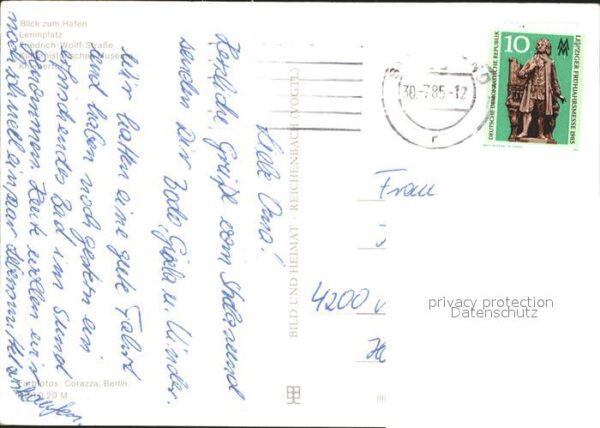 Blick zum Hafen
Leninplatz
Friedrich-Wolff-Straße
Liebe Oma!
Herzliche Grüße vom Stralsund
senden Dir Bodo, Gisela u. Kinder.
Wir hatten eine gute Fahrt
und haben noch gestern ein
erfrischendes Bad im Sund
genommen. Heute wollen wir
noch einmal ein paar
Farbfotos: Corazza, Berlin
20 M
BILD UND HEIMAT · REICHENBACH (VOGTL)
30.-7.85-12
r
10
DEUTSCHE DEMOKRATISCHE REPUBLIK
LEIPZIGER FRÜHJAHRSMESSE 1985
Frau
4200
privacy protection
Datenschutz